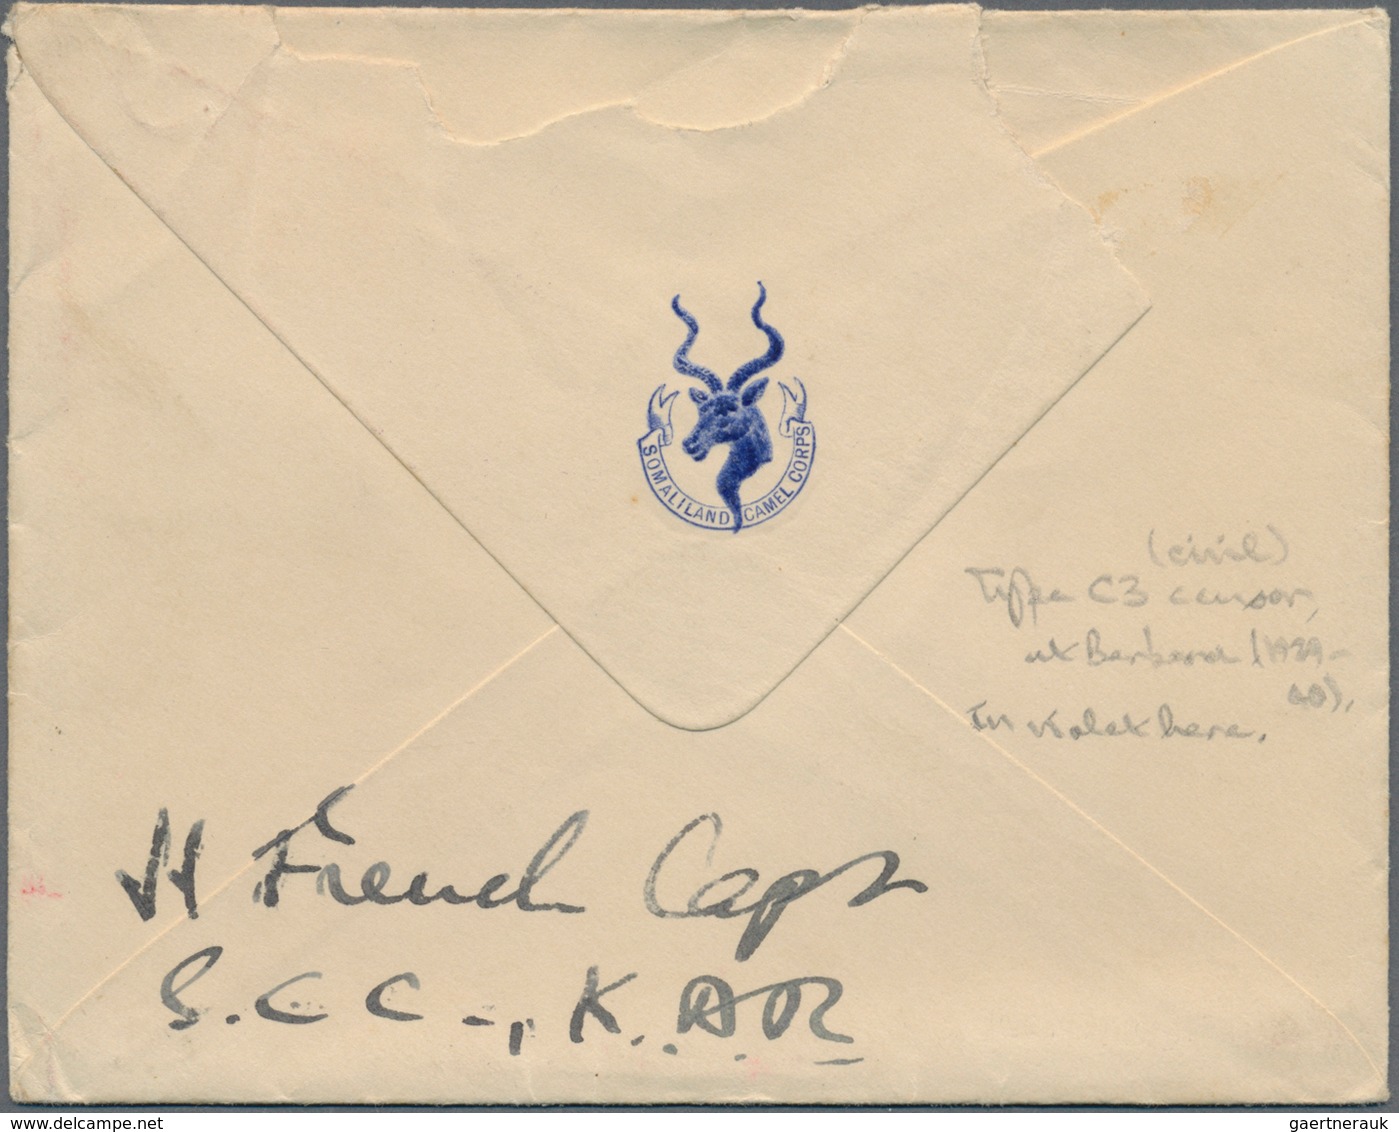 SOMALILAND CAMEL CORPS
(civil)
Type C3 censor,
at Berbera (1939-
40).
In violet here.
H French Capt
S.C.C., K.A.R
delcampe.net
gaertnerauk